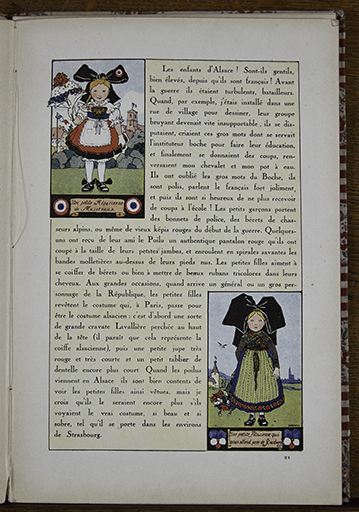 Les enfants d'Alsace! Sont-ils gentils,
bien élevés, depuis qu'ils sont français! Avant
la guerre ils étaient turbulents, batailleurs.
Quand, par exemple, j'étais installé dans une
rue de village pour dessiner, leur groupe
bruyant devenait vite insupportable, ils se dis-
putaient, criaient ces gros mots dont se servait
l'instituteur boche pour faire leur éducation,
et finalement se donnaient des coups, ren-
versaient mon chevalet et mon pot à eau.
Ils ont oublié les gros mots du Boche, ils
sont polis, parlent le français fort joliment,
et puis ils sont si heureux de ne plus recevoir
de coups à l'école! Les petits garçons portent
des bonnets de police, des bérets de chas-
seurs alpins, ou même de vieux képis rouges du début de la guerre. Quelques-
uns ont reçu de leur ami le Poilu un authentique pantalon rouge qu'ils ont
coupé à la taille de leurs petites jambes, et enroulent en spirales savantes les
bandes molletières au-dessus de leurs pieds nus. Les petites filles aiment à
se coiffer de bérets ou bien à mettre de beaux rubans tricolores dans leurs
cheveux. Aux grandes occasions, quand arrive un général ou un gros per-
sonnage de la République, les petites filles
revêtent le costume qui, à Paris, passe pour
être le costume alsacien : c'est d'abord une sorte
de grande cravate Lavallière perchée au haut
de la tête (il paraît que cela représente la
coiffe alsacienne), puis une petite jupe très
rouge et très courte et un petit tablier de
dentelle encore plus court! Quand les poilus
viennent en Alsace ils sont bien contents de
voir les petites filles ainsi vêtues, mais je
crois qu'ils le seraient encore plus s'ils
voyaient le vrai costume, si beau et si
sobre, tel qu'il se porte dans les environs
de Strasbourg.
Une petite Alsacienne
21